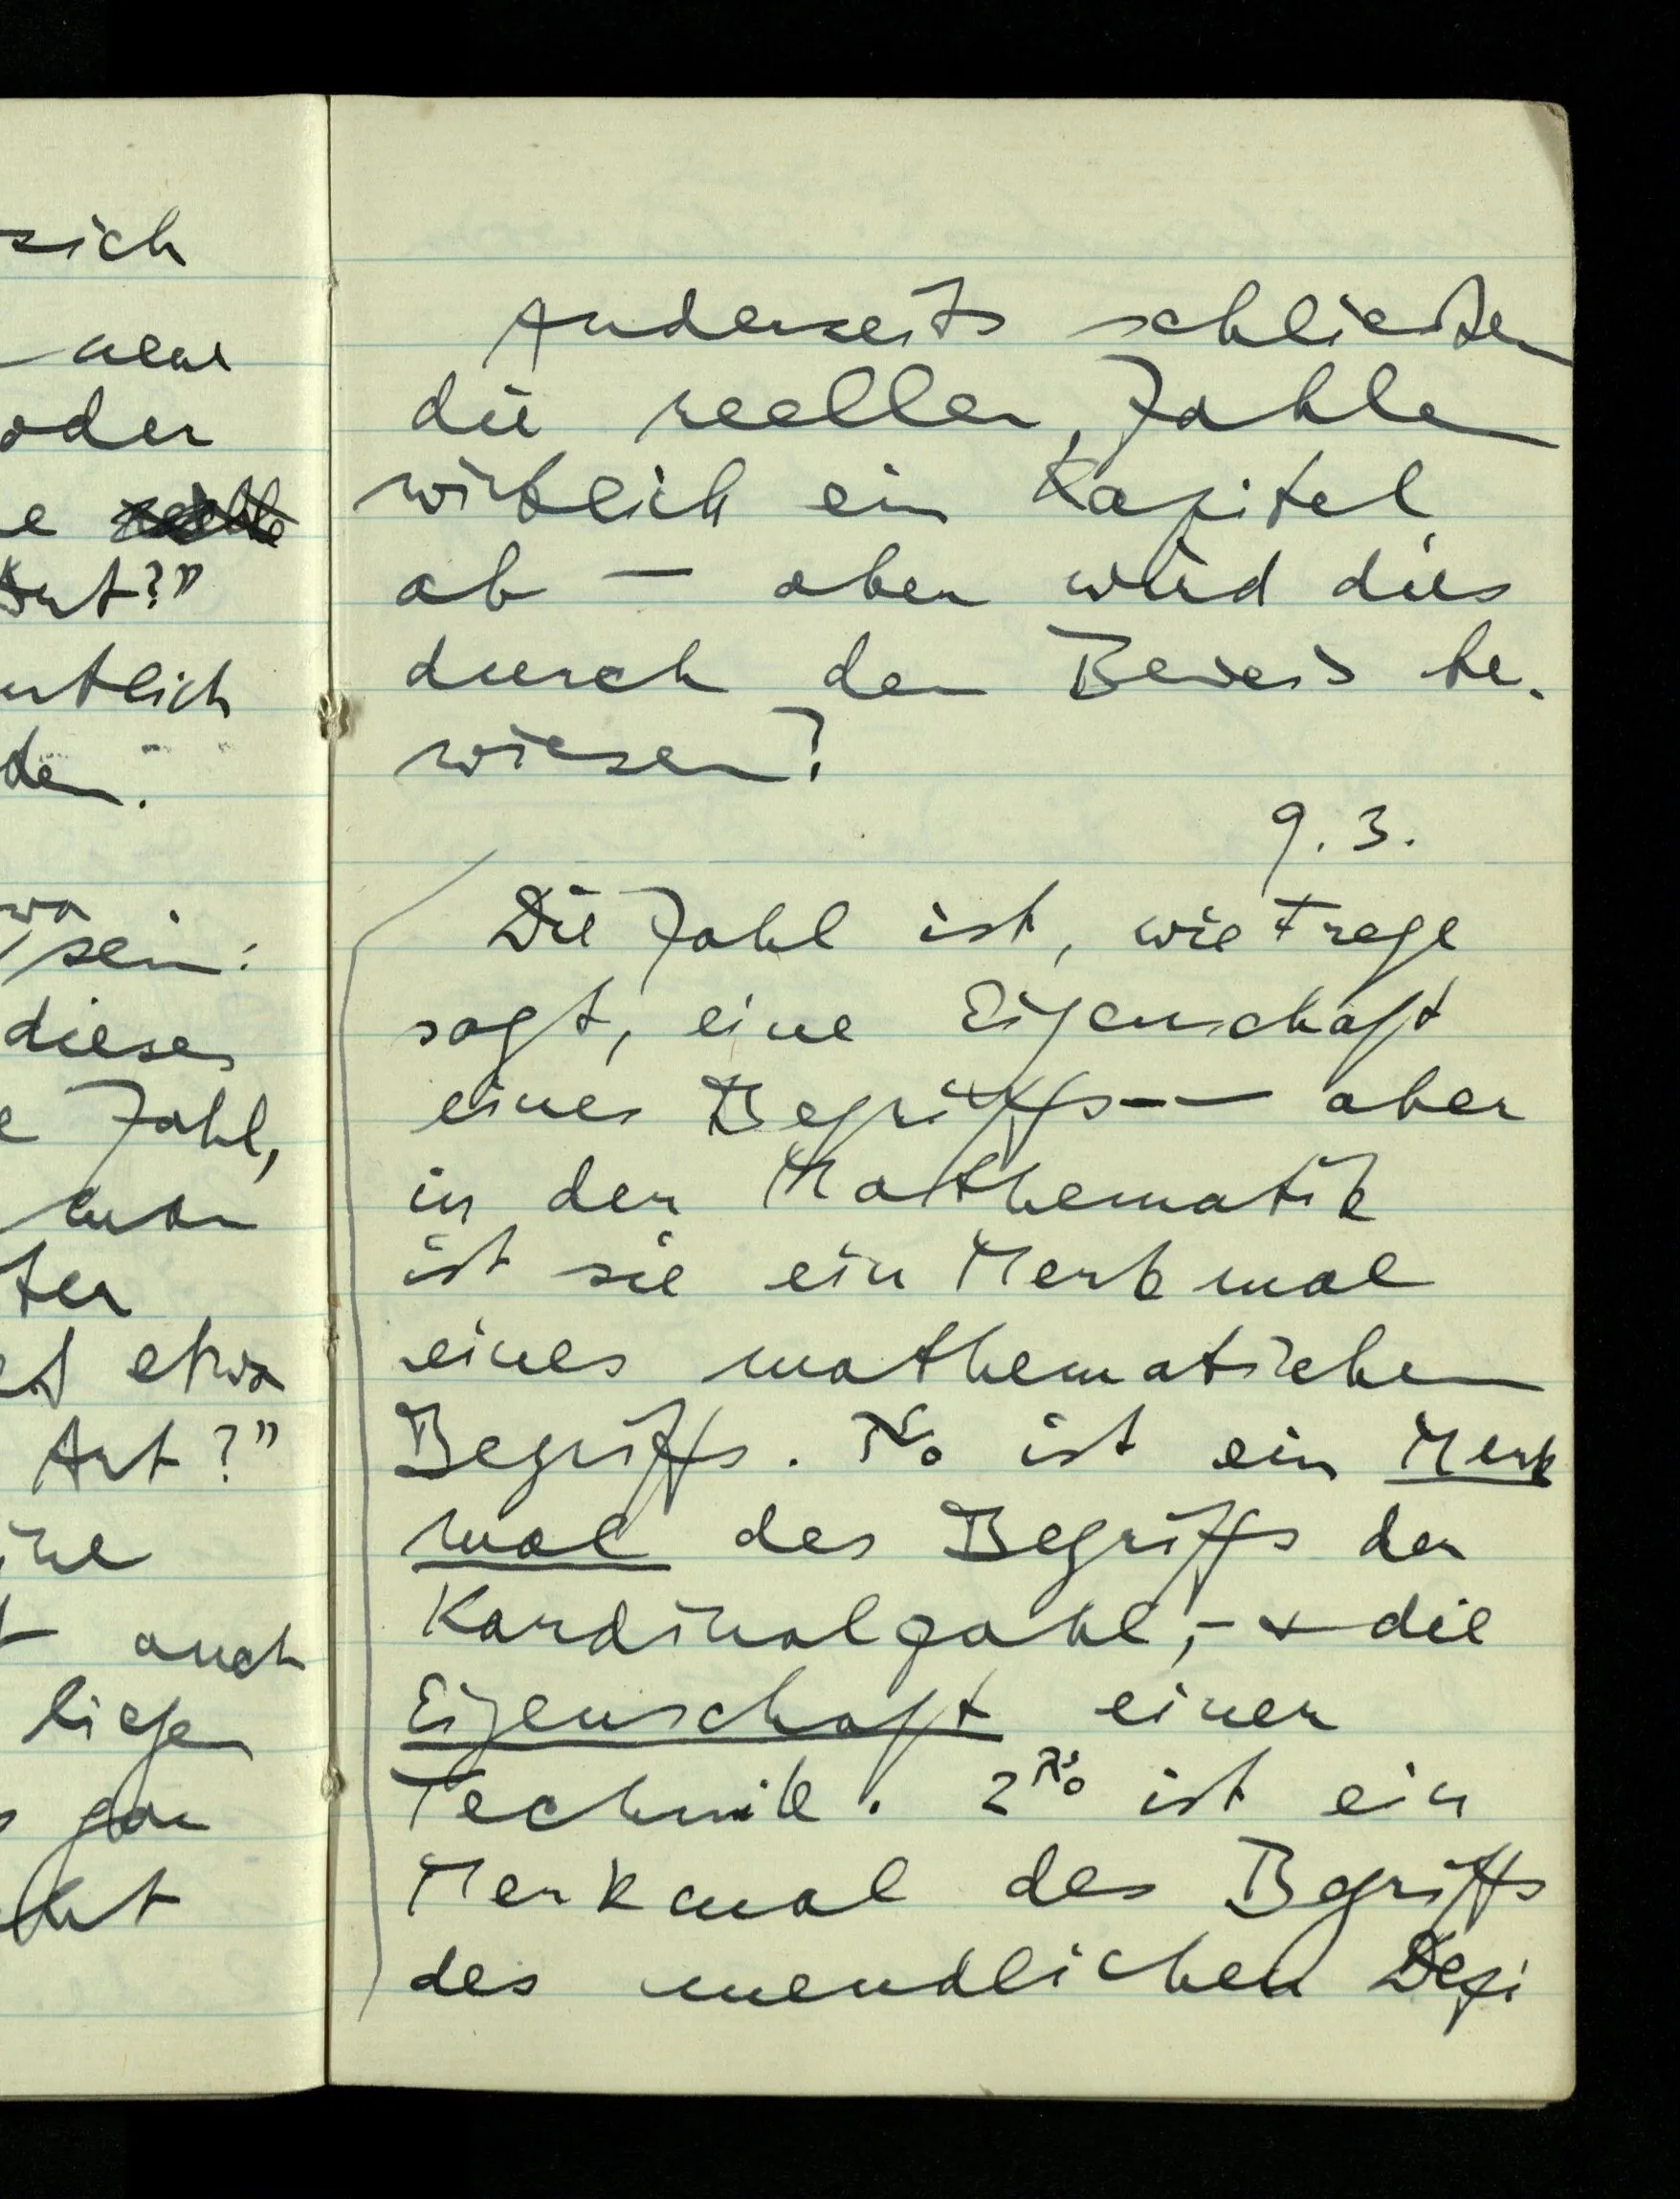 sich
neue
oder
e
Art?"
den.
wa
sein:
dieses
e Zahl,
man
ter
etwa
Art?"
auch
liegen
gar
Anderseits schließen
die reellen Zahlen
wirklich ein Kapitel
ab — aber wird dies
durch den Beweis be-
wiesen?
9.3.
Die Zahl ist, wie Frege
sagt, eine Eigenschaft
eines Begriffs — aber
in der Mathematik
ist sie ein Merkmal
eines mathematischen
Begriffs. ℵ₀ ist ein Merk
mal des Begriffs der
Kardinalzahl, – & die
Eigenschaft einer
Technik. 2^ℵ₀ ist ein
Merkmal des Begriffs
des unendlichen Dezi